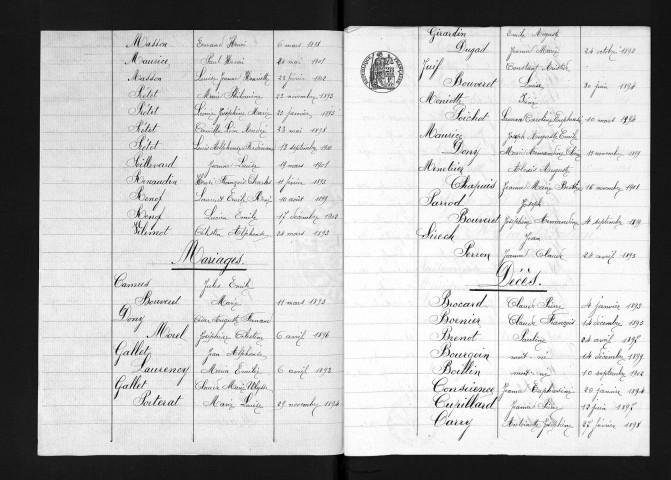 Masson Fernand Henri 6 mars 1898
Maurice Paul Henri 20 mai 1901
Masson Louise Jeanne Henriette 22 février 1902
Rétet Marie Philomène 23 novembre 1893
Rétet Josephine Marie 20 janvier 1895
Rétet Camille Léon 23 mai 1898
Rétet Louis Alphonse 13 septembre 1900
Jeanne Louise 19 mars 1901
Renaudin François Charles 11 février 1893
Renof Laurent Emile 10 août 1899
Renof Lucien Emile 17 décembre 1902
Célestin Alphonse 24 mars 1893
Mariages.
Camus Jules Emile
Bouveret Marie 11 mars 1893
Dony Auguste Fernand
Morel Joséphine Célestine 6 avril 1896
Gallet Jean Alphonse
Laurency Maria Emilie 6 avril 1893
Gallet Claude Marie Ulysse
Porterat Marie Louise 29 novembre 1894
Girardin Emile Auguste
Dugad Jeanne Marie 24 octobre 1892
Juif Constant
Bouveret Louise 30 juin 1894
Poichot Caroline 10 mars 1894
Maurice Joseph Auguste Emile
Dony Marie 11 novembre 1899
Auguste
Chapuis Jeanne Marie 16 novembre 1901
Parrod Joseph
Bouveret Joséphine 4 septembre
Jean
Perron Jeanne Claude 24 avril 1893
Décès.
Brocard Claude Pierre 4 janvier 1893
Boenier Claude François 14 décembre 1893
Brenot Pauline 24 avril 1895
Bourgoin mort-né 14 décembre 1899
Boillin mort-né 10 septembre 1902
Conscience Jeanne 20 janvier 1894
Cupillard Jeanne 12 juin 1895
Carry Antoinette Joséphine 27 février 1898